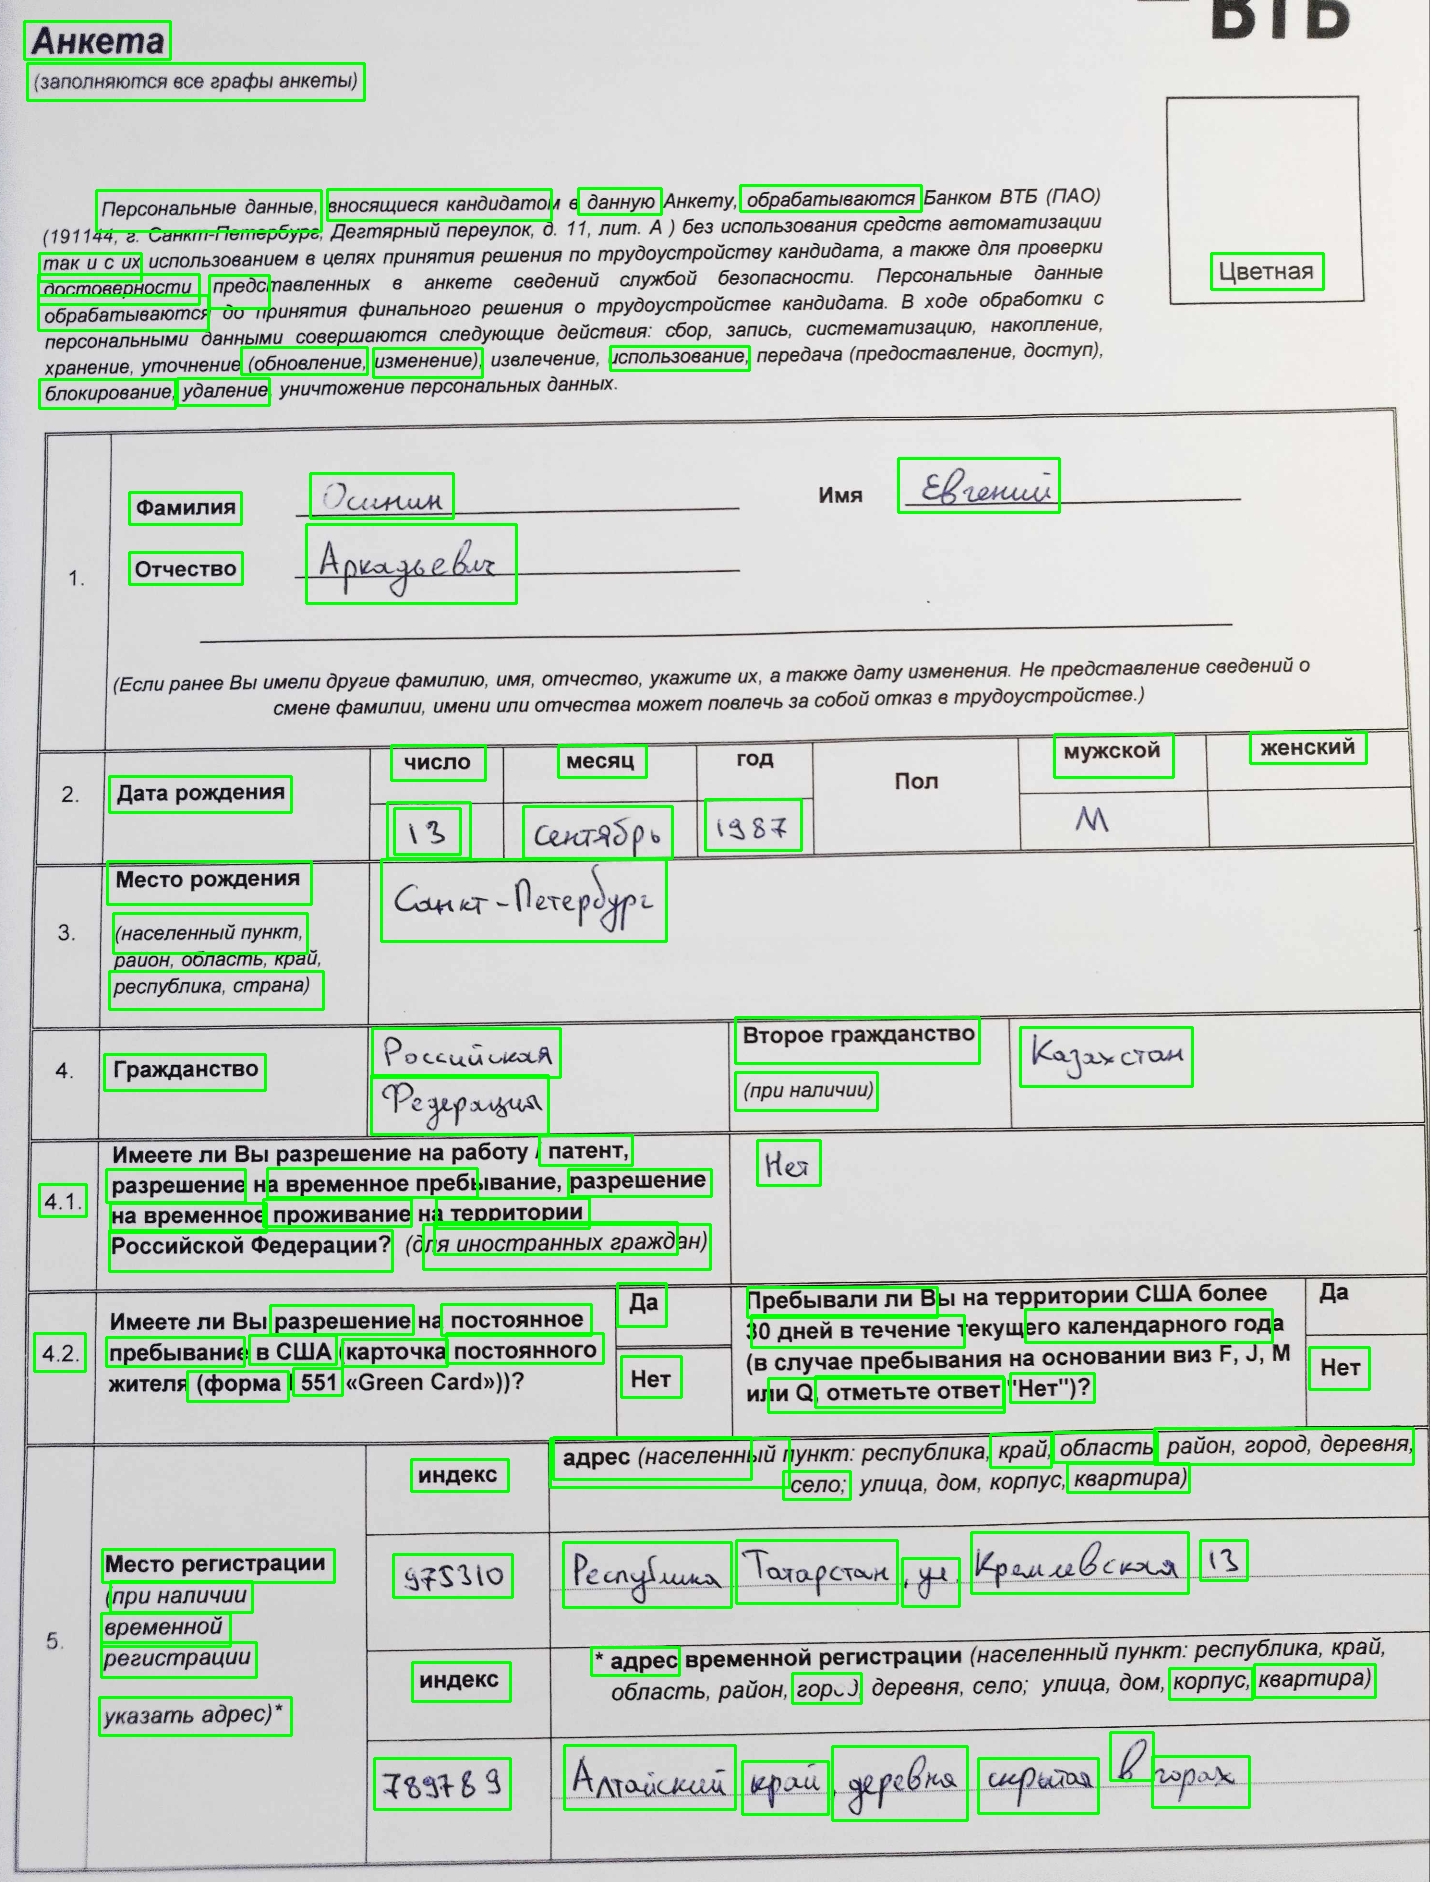 ВТБ
Анкета
(заполняются все графы анкеты)
Цветная
Персональные данные, вносящиеся кандидатом в данную Анкету, обрабатываются Банком ВТБ (ПАО)
(191144, г. Санкт-Петербург, Дегтярный переулок, д. 11, лит. А ) без использования средств автоматизации
так и с их использованием в целях принятия решения по трудоустройству кандидата, а также для проверки
достоверности представленных в анкете сведений службой безопасности. Персональные данные
обрабатываются до принятия финального решения о трудоустройстве кандидата. В ходе обработки с
персональными данными совершаются следующие действия: сбор, запись, систематизацию, накопление,
хранение, уточнение (обновление, изменение), извлечение, использование, передача (предоставление, доступ),
блокирование, удаление, уничтожение персональных данных.
1.
Фамилия Осинин Имя Евгений
Отчество Аркадьевич
(Если ранее Вы имели другие фамилию, имя, отчество, укажите их, а также дату изменения. Не представление сведений о
смене фамилии, имени или отчества может повлечь за собой отказ в трудоустройстве.)
2. Дата рождения число месяц год Пол мужской женский
13 сентябрь 1987 М
3. Место рождения Санкт-Петербург
(населенный пункт,
район, область, край,
республика, страна)
4. Гражданство Российская Федерация Второе гражданство Казахстан
(при наличии)
4.1. Имеете ли Вы разрешение на работу / патент,
разрешение на временное пребывание, разрешение
на временное проживание на территории
Российской Федерации? (для иностранных граждан)
Нет
4.2. Имеете ли Вы разрешение на постоянное
пребывание в США (карточка постоянного
жителя (форма I 551 «Green Card»))?
Да
Нет
Пребывали ли Вы на территории США более
30 дней в течение текущего календарного года
(в случае пребывания на основании виз F, J, M
или Q, отметьте ответ "Нет")?
Да
Нет
5. Место регистрации
(при наличии
временной
регистрации
указать адрес)*
индекс адрес (населенный пункт: республика, край, область, район, город, деревня,
село; улица, дом, корпус, квартира)
975310 Республика Татарстан, ул. Кремлевская 13
индекс * адрес временной регистрации (населенный пункт: республика, край,
область, район, город, деревня, село; улица, дом, корпус, квартира)
789789 Алтайский край, деревня скрытая в горах